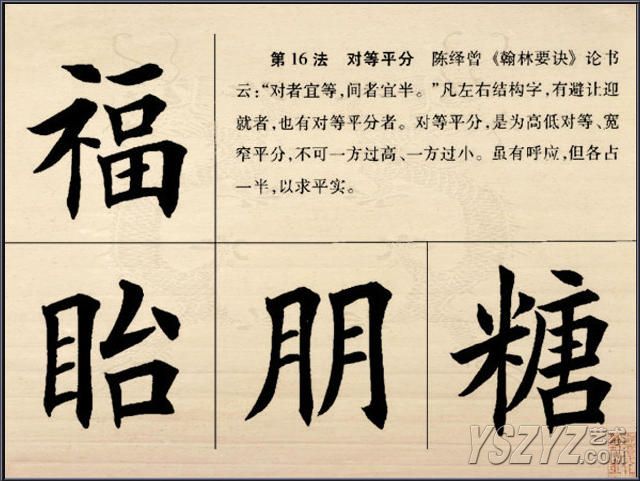 第16法　对等平分　陈绎曾《翰林要诀》论书
云：“对者宜等，间者宜半。”凡左右结构字，有避让迎
就者，也有对等平分者。对等平分，是为高低对等、宽
窄平分，不可一方过高、一方过小。虽有呼应，但各占
一半，以求平实。
福
眙 朋 糖
YSZYZ艺术.COM